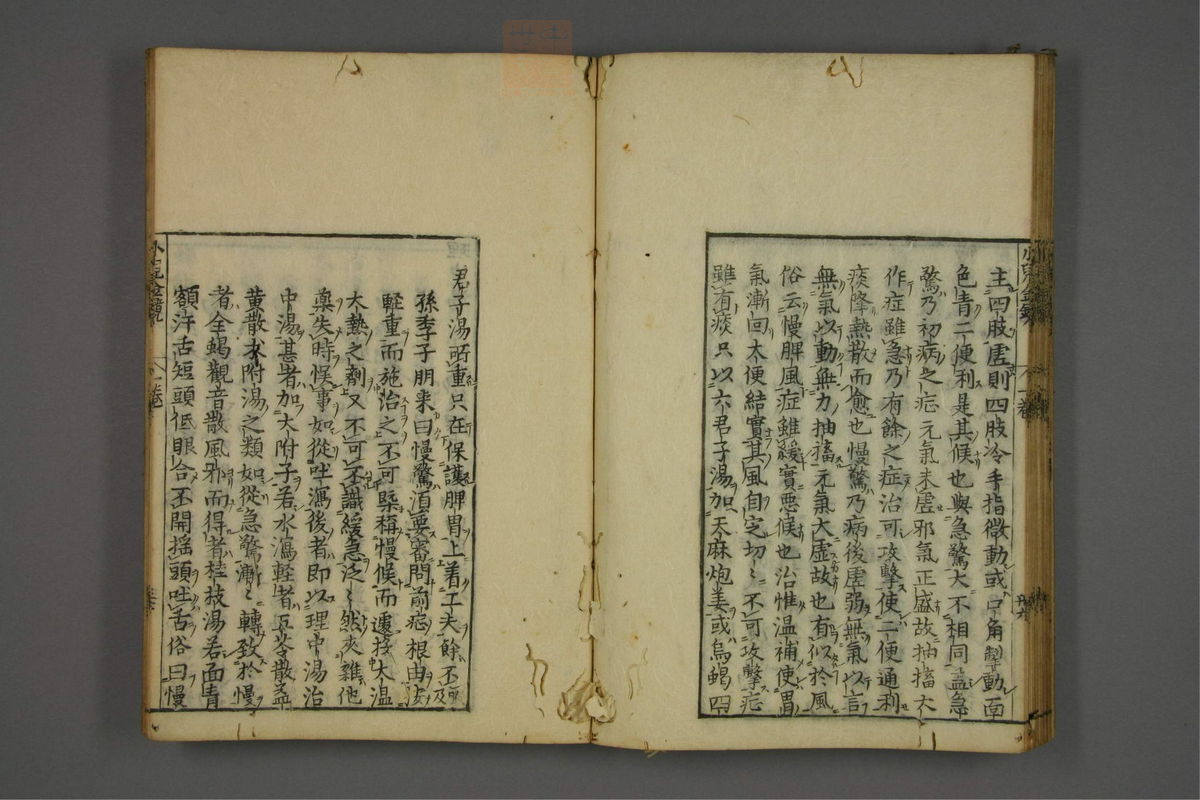 主四肢虚則四肢冷手指微動或口角掣動面
色青二便利是其候也與急驚大不相同盖急
驚乃初病之症元氣未虚邪氣正盛故抽搐大
作症雖急乃有餘之症治可攻擊使二便通利
痰降熱散而愈也慢驚乃病後虚弱無氣以言
無氣以動無力抽搐元氣大虚故也有似於風
俗云慢脾風症雖緩實悪候也治惟温補使胃
氣漸回大便結實其風自定切〻不可攻擊症
雖有痰只以六君子湯加天麻炮姜或烏蝎四
君子湯所重只在保護脾胃上着子夫餘不可及
孫季子朋来曰慢驚湏要審問前症根由
軽重而施治之不可槩稱慢候而遽投大温
大熱之劑又不可不識緩急泛〻然夾雜他
藥失時悮事如從吐瀉後者即以理中湯治
中湯甚者加大附子若水瀉軽者五苓散益
黄散术附湯之類如從急驚漸〻轉致於慢
者全蝎觀音散風邪而得者桂枝湯若面青
額汗舌短頭低眼合不開揺頭吐舌俗曰慢